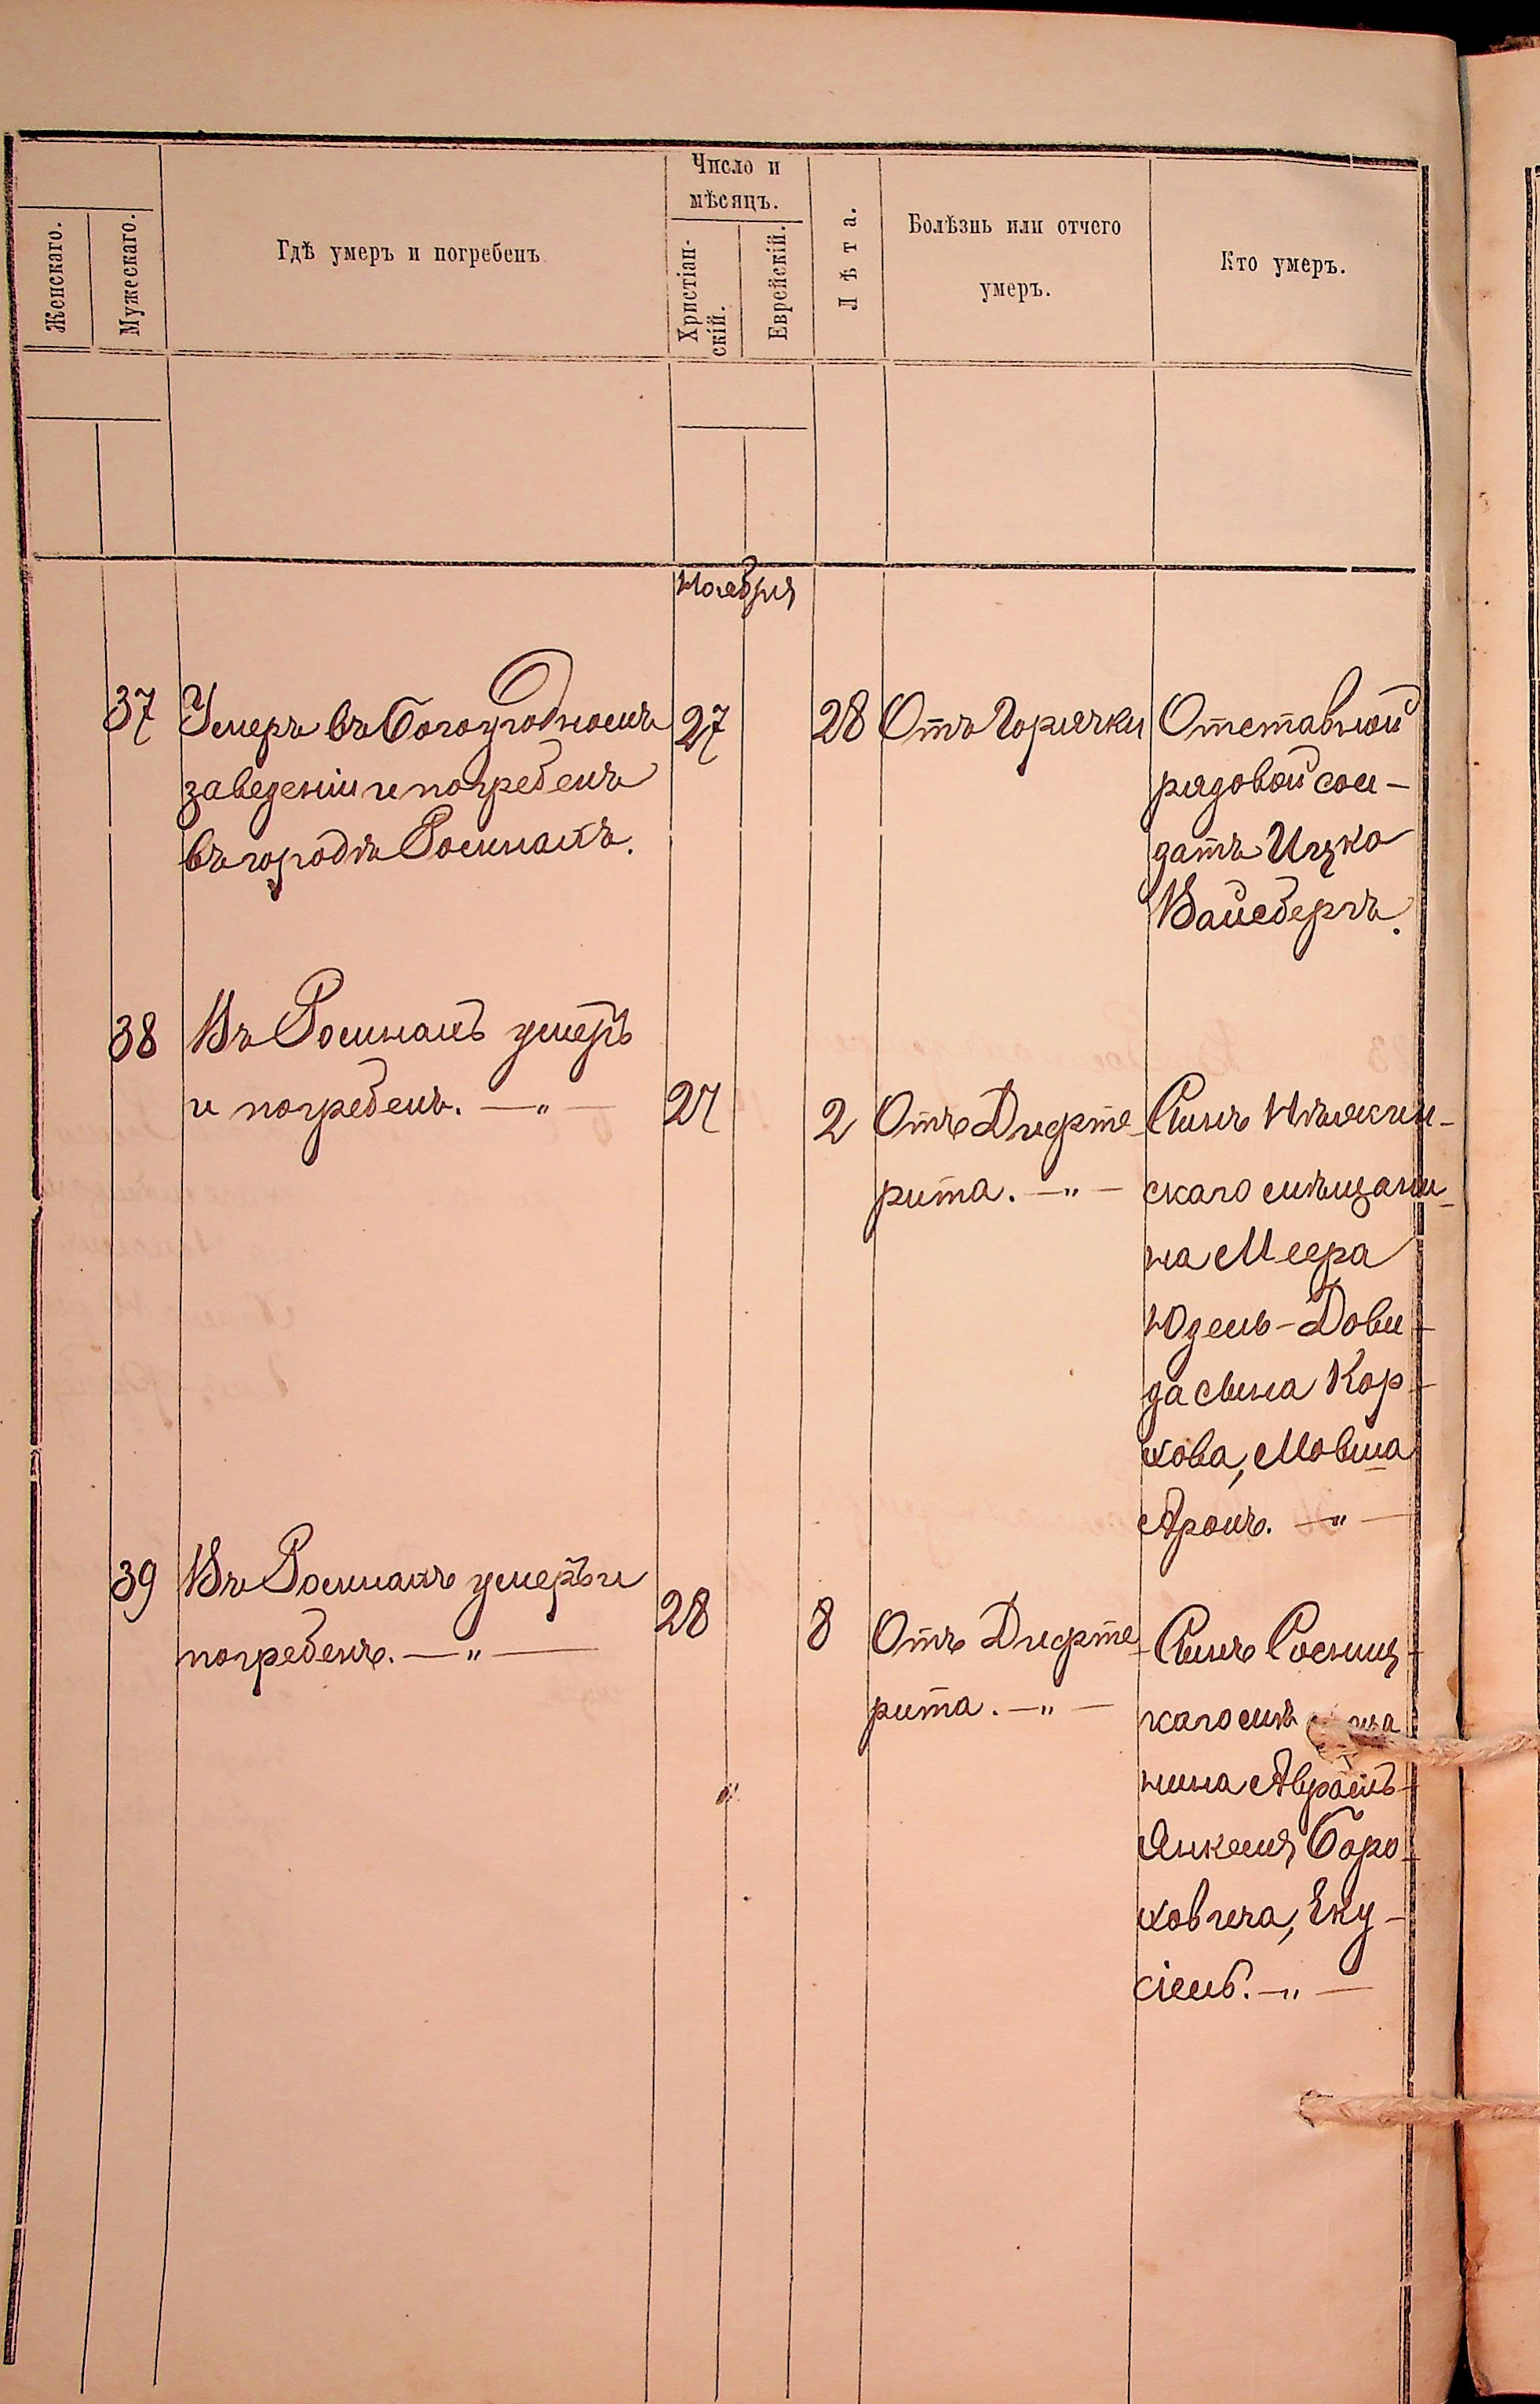 Число и
мѣсяцъ.
Женскаго.
Мужескаго.
Гдѣ умеръ и погребенъ
Христіан-
скій.
Еврейскій.
Лѣта.
Болѣзнь или отчего
умеръ.
Кто умеръ.
Ноября
37
Умеръ въ богоугодномъ
заведеніи и погребенъ
въ городѣ Ромнахъ.
27
28
Отъ Горячки
Отставной
рядовой сол-
датъ Ицко
Вайсбергъ.
38
Въ Ромнахъ умеръ
и погребенъ. —„—
27
2
Отъ Дифте-
рита. —„—
Сынъ Нѣжин-
скаго мѣщани-
на Меера
Юдель-Дови-
да сына Кор-
хова, Мовша
Аронъ. —„—
39
Въ Ромнахъ умеръ и
погребенъ. —„—
28
8
Отъ Дифте-
рита. —„—
Сынъ
каго
нина Абрамъ-
Янкеля Боро-
ховича, Еку-
сіель. —„—